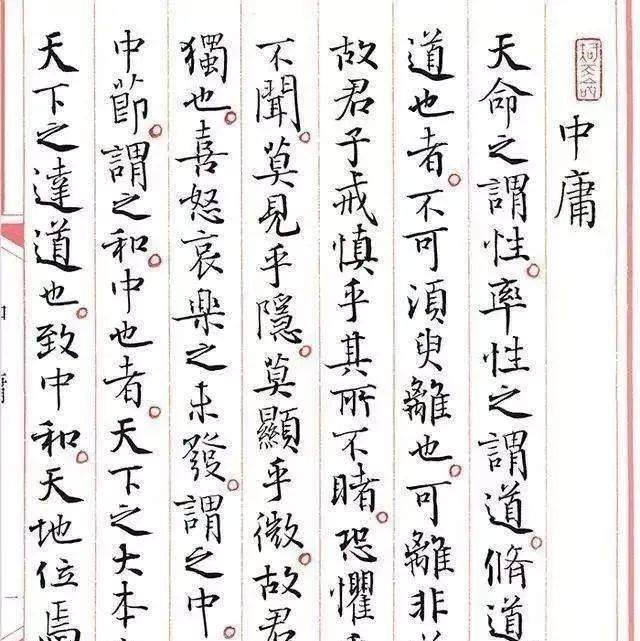 中庸
天命之謂性。率性之謂道。脩道
道也者。不可須臾離也。可離非
故君子戒慎乎其所不睹。恐懼
不聞。莫見乎隱。莫顯乎微。故君
獨也。喜怒哀樂之未發。謂之中。
中節。謂之和。中也者。天下之大本
天下之達道也。致中和。天地位焉